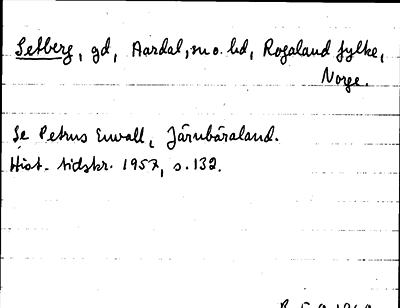 Setberg, gd, Aardal, m o. hd, Rogaland fylke,
Norge.
Se Petrus Envall, Järnbäraland.
Hist. tidskr. 1957, s. 132.